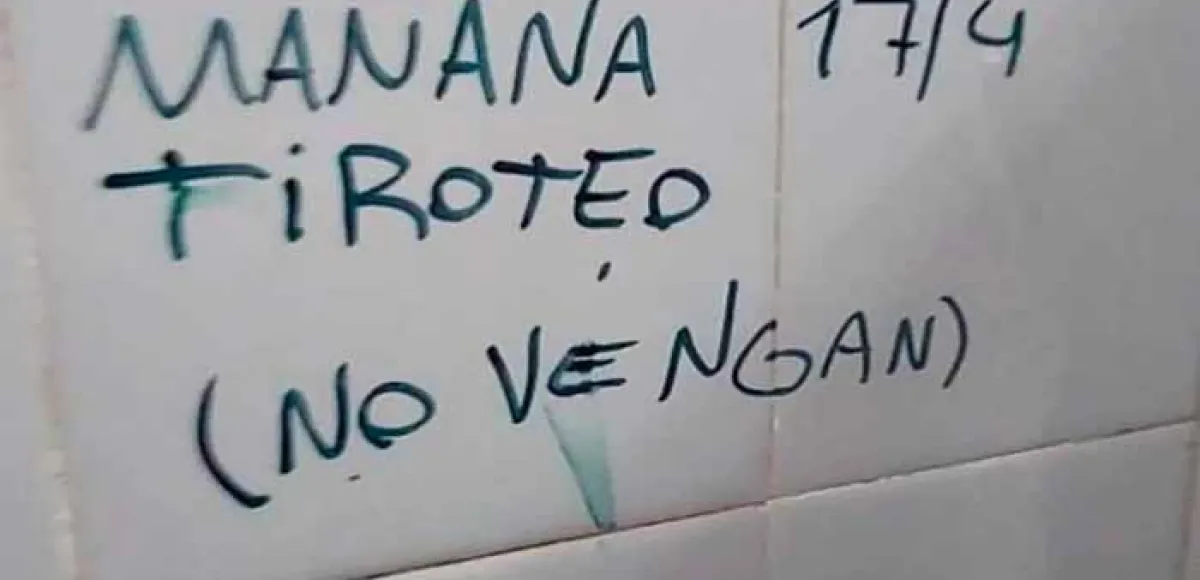 MANANA 17/4
TiROTEO
(NO VENGAN)